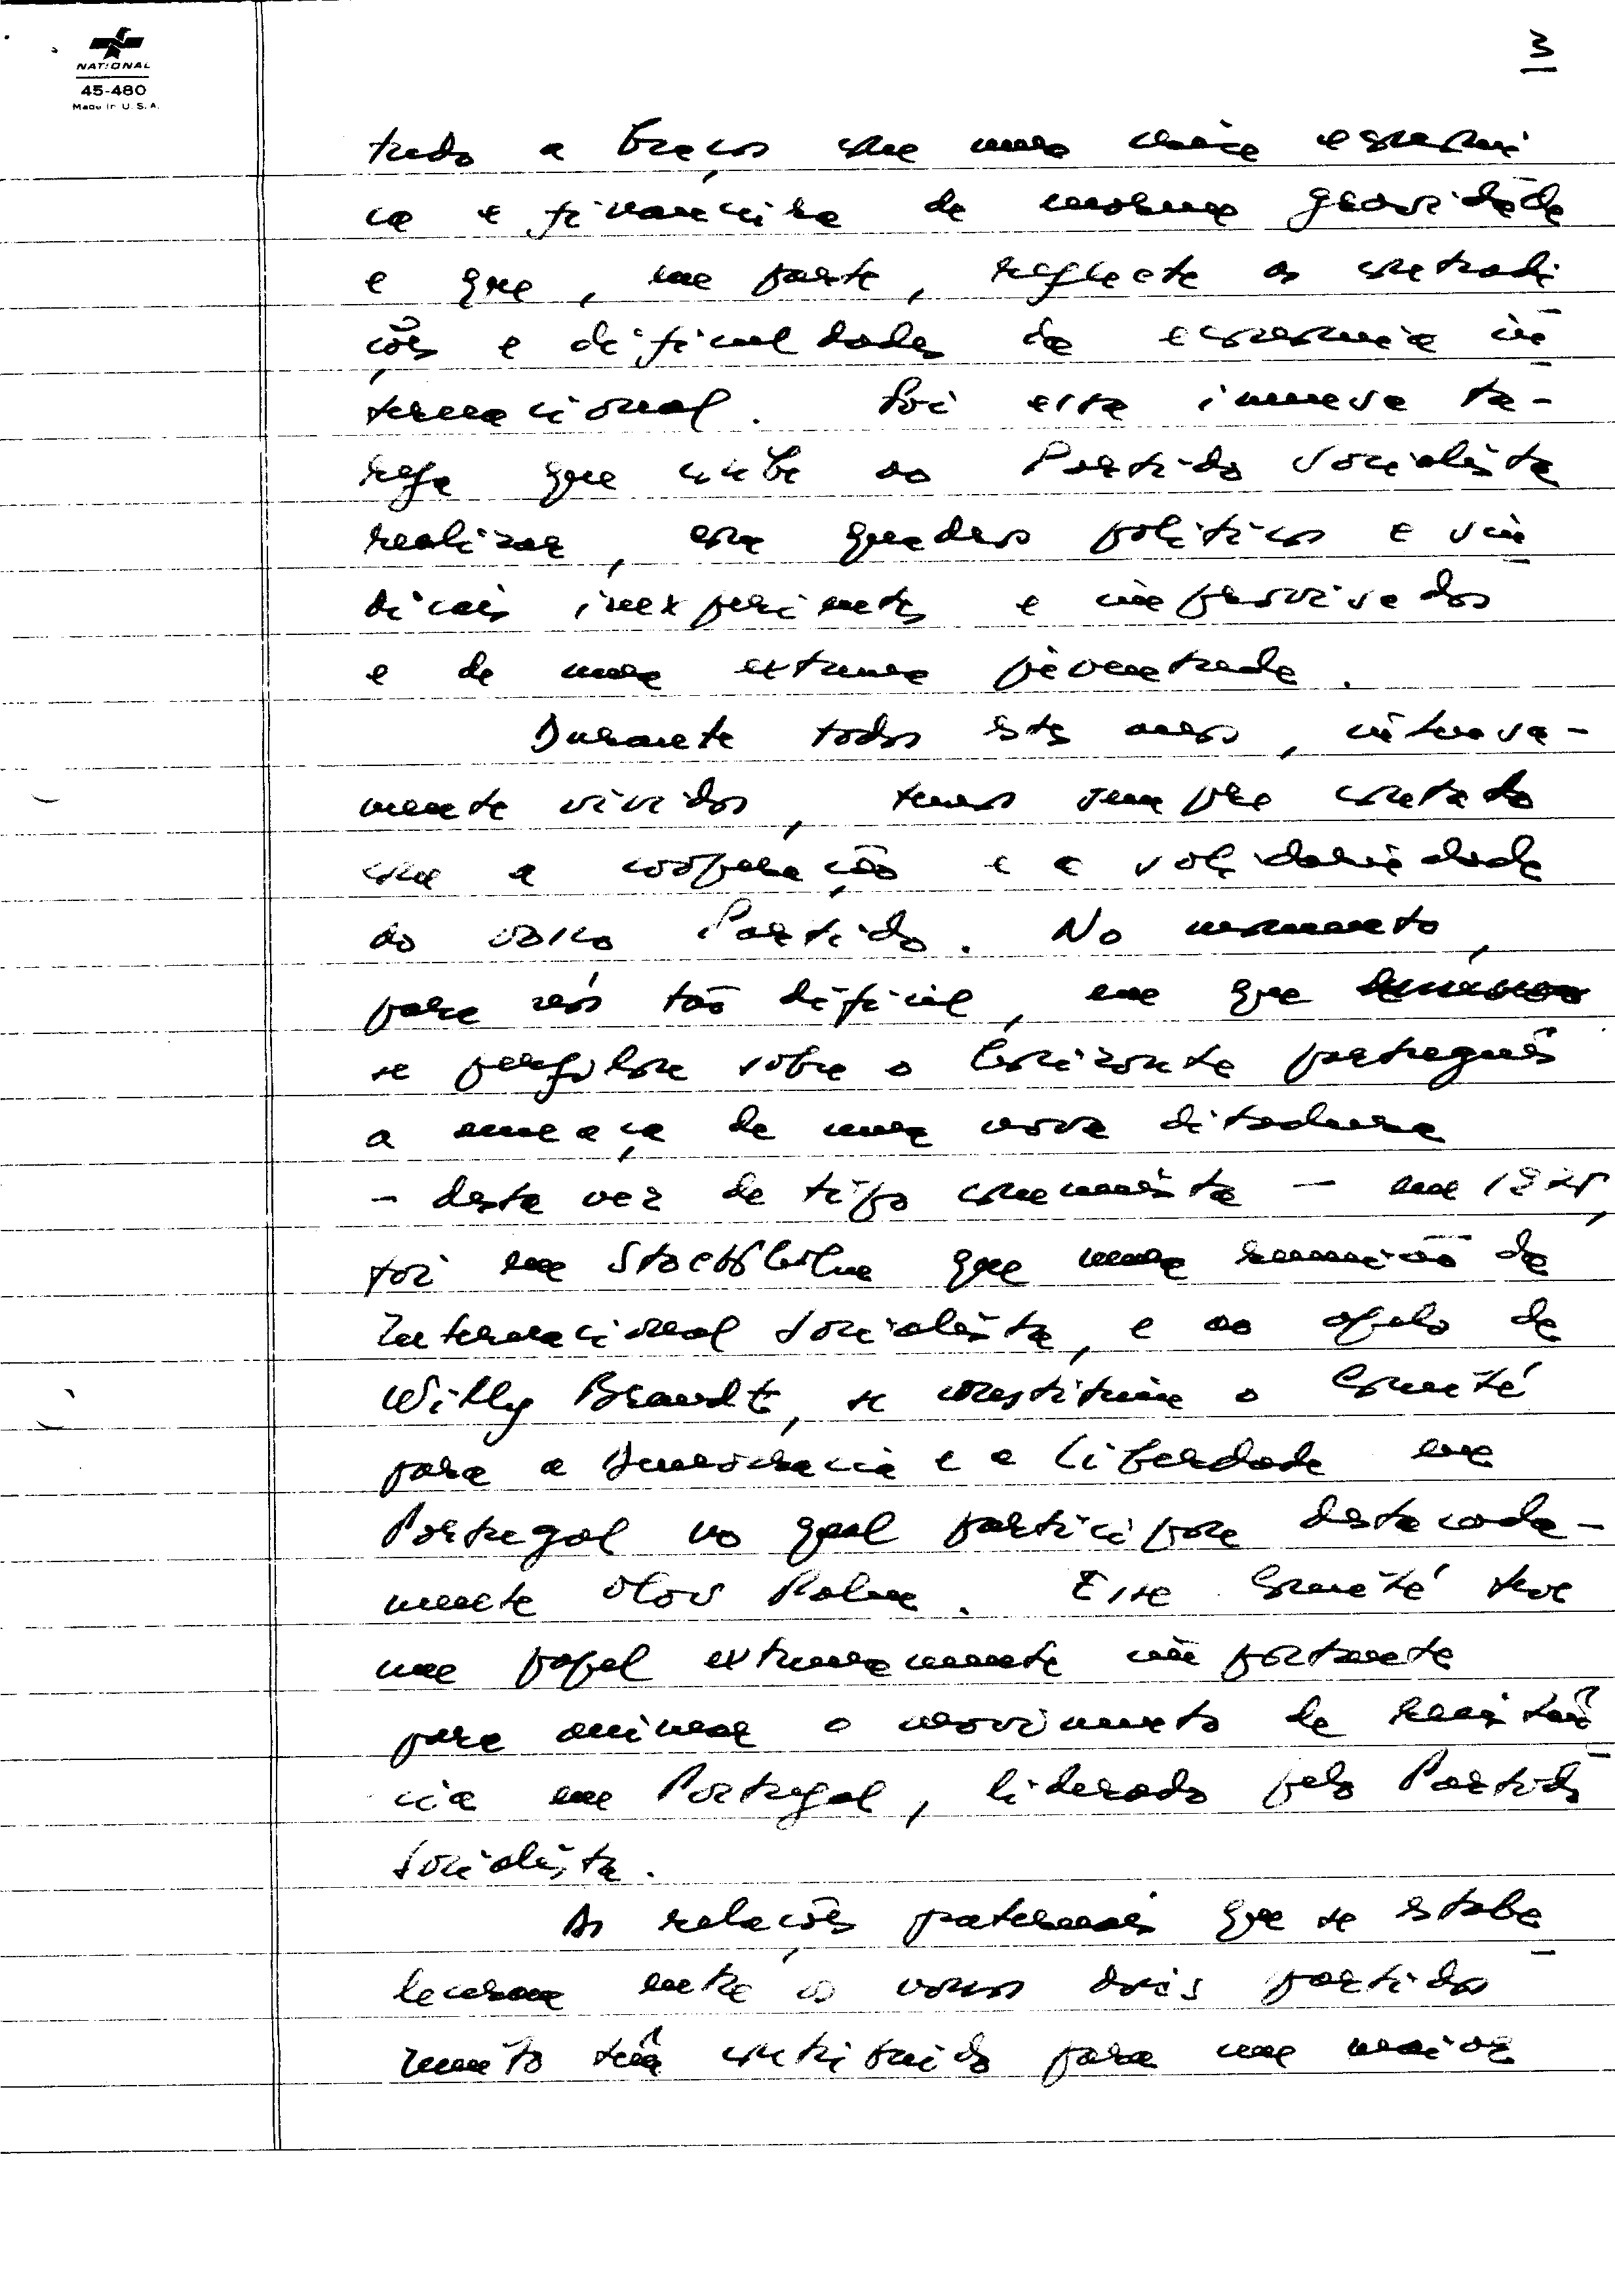 NATIONAL
45-480
Made in U.S.A.
3
tudo a braços com uma crise económi
ca e financeira de enorme gravidade
e que, em parte, reflecte as contradi
ções e dificuldades da economia in
ternacional. Foi esta imensa ta-
refa que coube ao Partido Socialista
realizar, com quadros políticos e sin
dicais inexperientes e improvisados
e de uma extrema juventude.
Durante todos estes anos, intensa-
mente vividos, temos sempre contado
com a cooperação e a solidariedade
do vosso Partido. No momento,
para nós tão difícil, em que
se perfilou sobre o horizonte português
a ameaça de uma nova ditadura
- desta vez de tipo comunista - em 1975,
foi em Stockholm que numa reunião da
Internacional Socialista, e ao apelo de
Willy Brandt, se constituiu o Comité
para a Democracia e a Liberdade em
Portugal no qual participou destacada-
mente Olov Palme. Esse Comité teve
um papel extremamente importante
para animar o movimento de resistên
cia em Portugal, liderado pelo Partido
Socialista.
As relações fraternais que se estabe
leceram entre os nossos dois partidos
muito têm contribuido para um maior